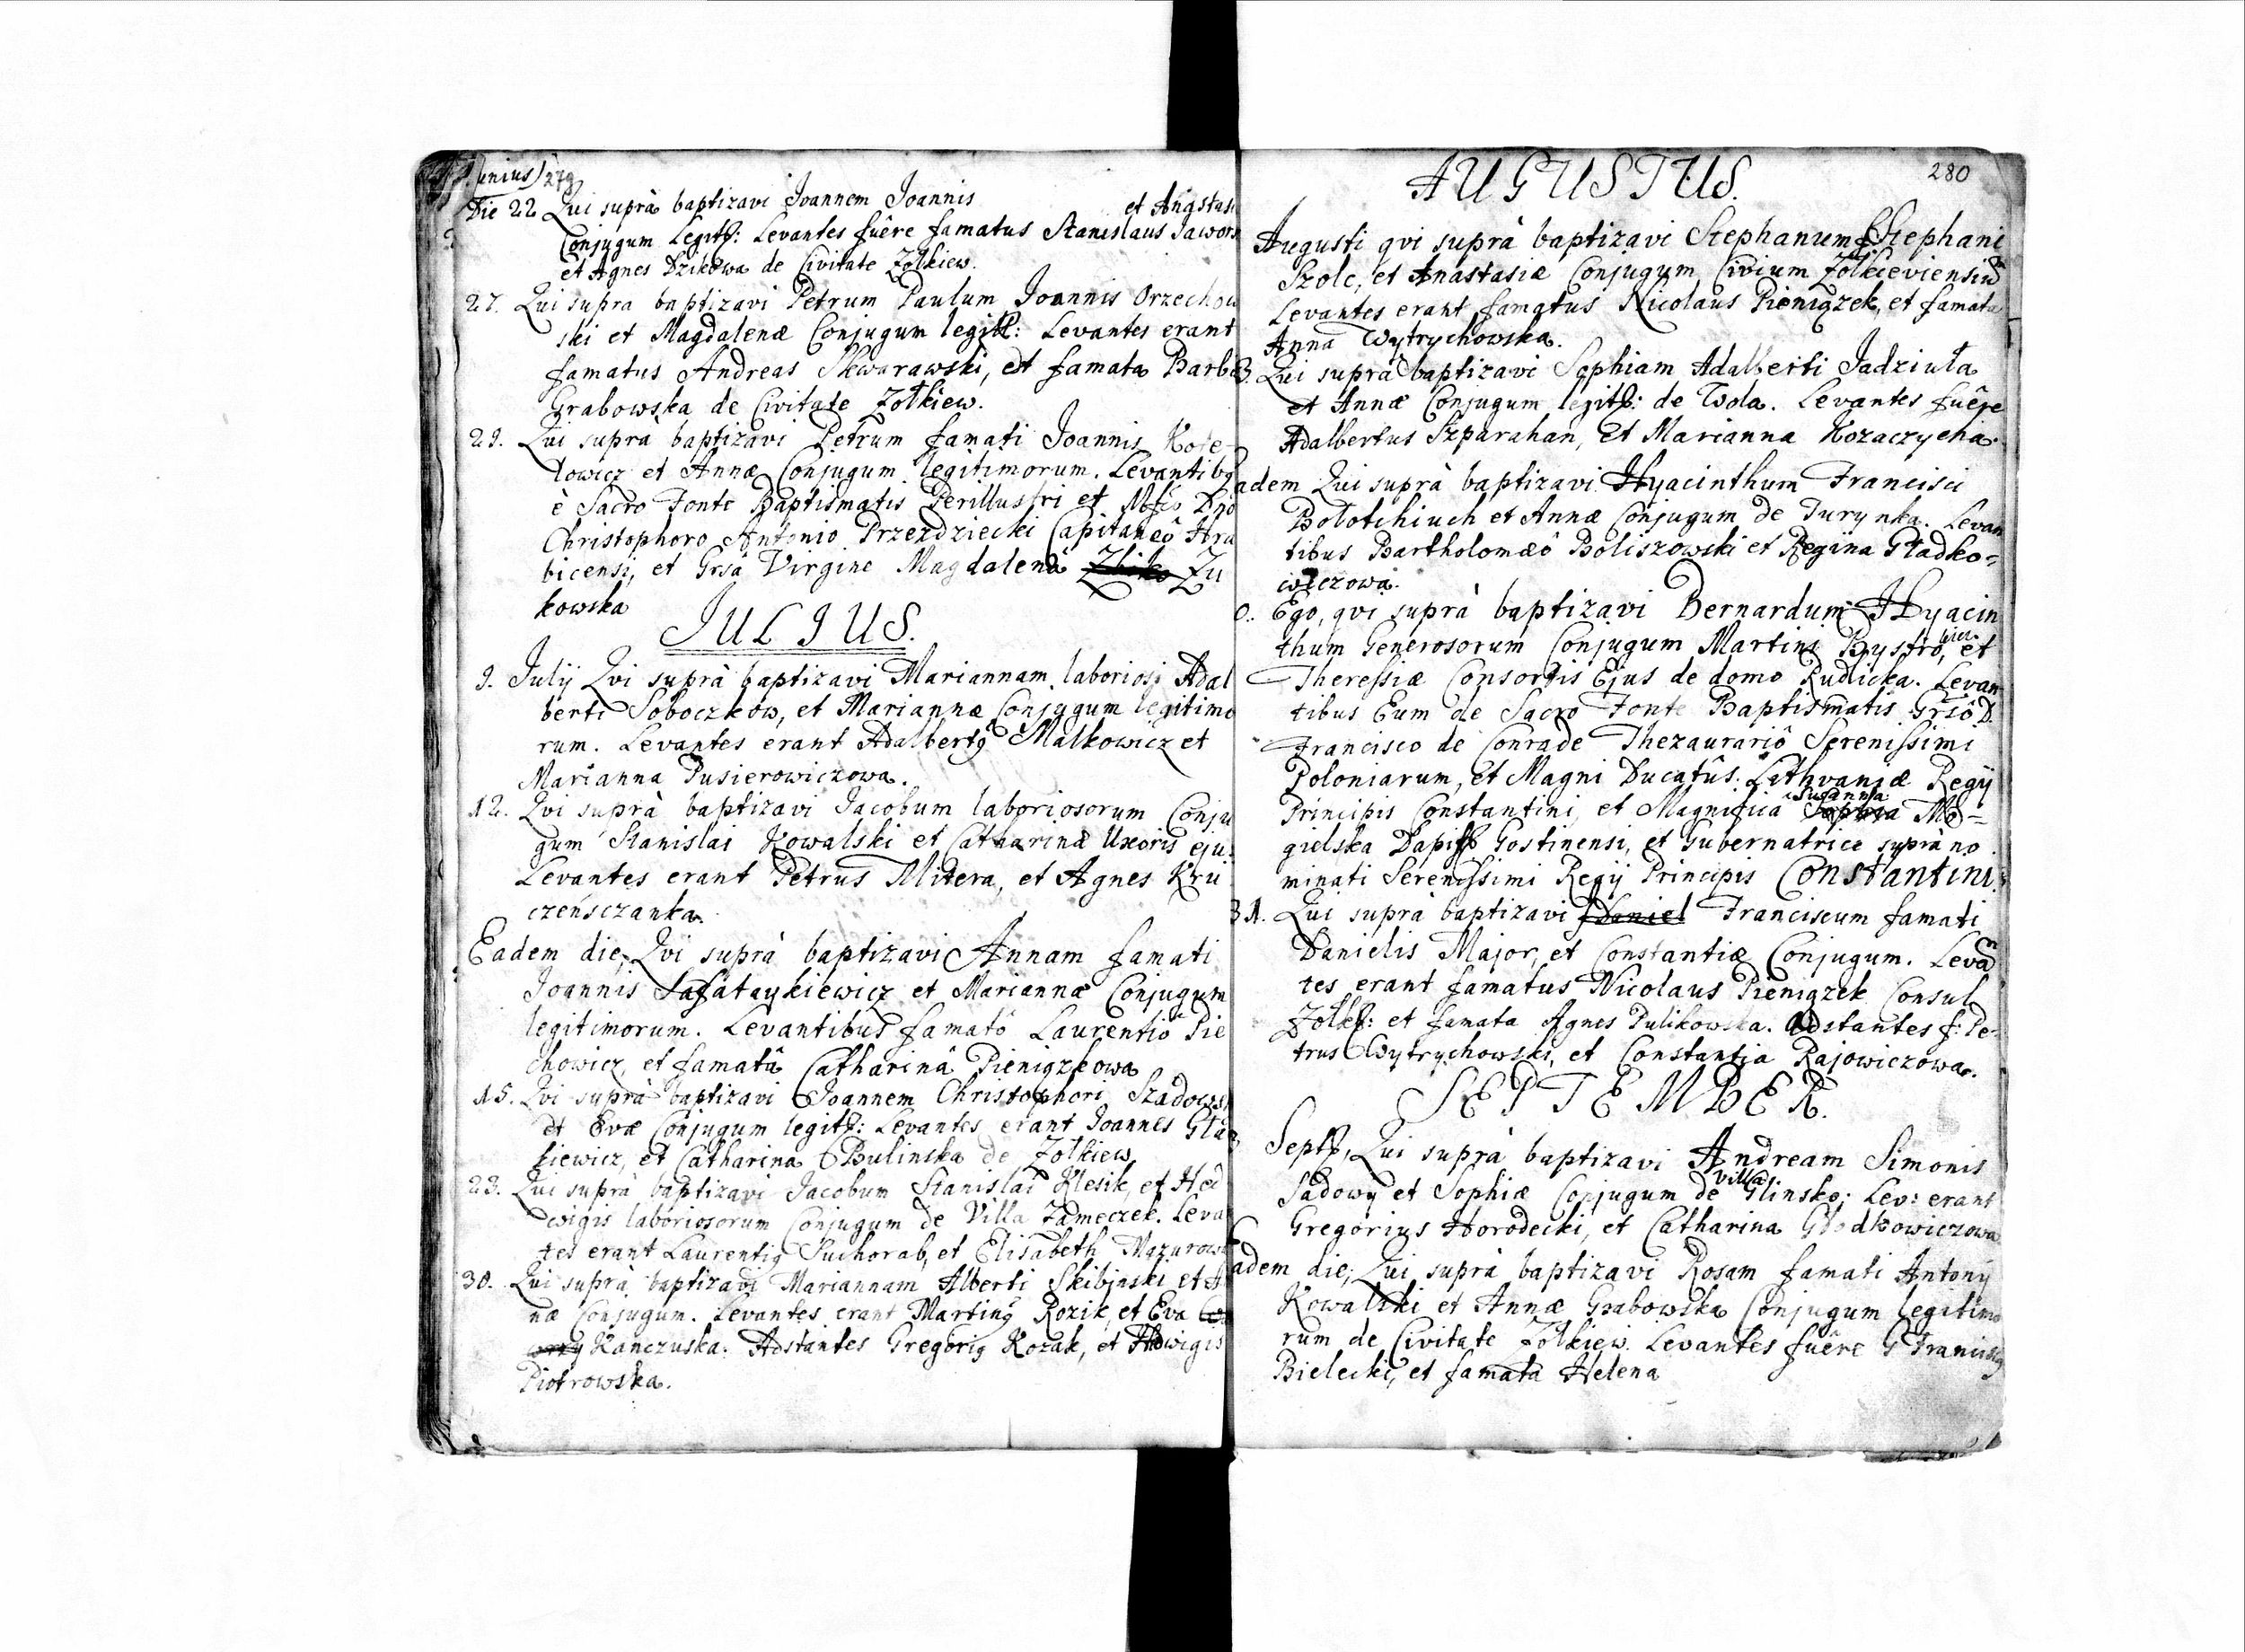 Junius 279
Die 22 Qui suprà baptizavi Joannem Joannis et Angstas
Conjugum Legitt: Levantes fuêre famatus Stanislaus Jawors
et Agnes Dzikowa de Civitate Zołkiew.
27. Qui supra baptizavi Petrum Paulum Joannis Orzechow
ski et Magdalenæ Conjugum legitt: Levantes erant
famatus Andreas Skwarawski, et famata Barba
Grabowska de Civitate Zołkiew.
29. Qui suprà baptizavi Petrum famati Joannis Kote-
łowicz et Annæ Conjugum legitimorum. Levantibg
è Sacro Fonte Baptismatis Perillustri et Mfco Dno
Christophoro Antonio Przezdziecki Capitaneô Hru
bicensi, et Grsâ Virgine Magdalenâ Zu
kowska
JULIUS.
9. Julij Qvi suprà baptizavi Mariannam laboriosi Adal
berti Soboczkow, et Mariannæ Conjugum legitimo
rum. Levantes erant Adalbertg Malkowicz et
Marianna Pusierowiczowa.
12. Qvi suprà baptizavi Jacobum laboriosorum Conju
gum Stanislai Kowalski et Catharinæ Uxoris eju:
Levantes erant Petrus Mitera, et Agnes Kru
czeńsczanka.
Eadem die, Qvi suprà baptizavi Annam famati
Joannis Safataykiewicz et Mariannæ Conjugum
legitimorum. Levantibus famatô Laurentiô Pie
chowicz, et famatâ Catharinâ Pieniązkowa
15. Qvi suprà baptizavi Joannem Christophori Szadows
et Evæ Conjugum legitt: Levantes erant Joannes Gła
kiewicz, et Catharina Bulinska de Zołkiew.
23. Qui suprà baptizavi Jacobum Stanislai Klesik, et Hed
wigis laboriosorum Conjugum de Villa Zameczek. Leva
tes erant Laurentig Suchorab, et Elisabeth Mazurowa
30. Qui suprà baptizavi Mariannam Alberti Skibinski et An
næ Conjugum. Levantes erant Marting Rozik, et Eva
Kanczuska. Adstantes Gregorig Kozak, et Hedwigis
Piotrowska.
AUGUSTUS. 280
Augusti qvi suprà baptizavi Stephanum Stephani
Szolc, et Anastasiæ Conjugum Civium Zołkieviensiũ
Levantes erant famatus Nicolaus Pieniązek, et famata
Anna Wytrychowska.
3. Qui suprà baptizavi Sophiam Adalberti Jadziuła
et Annæ Conjugum legitt: de Wola. Levantes fuêre
Adalbertus Szparahan, et Marianna Kozaczycha.
adem Qui suprà baptizavi Hyacinthum Francisci
Bołotchiuch et Annæ Conjugum de Turynka. Levan
tibus Bartholomæô Boliszowski et Regina Gładko=
wiczowa.
0. Ego, qvi suprà baptizavi Bernardum Hyacin
thum Generosorum Conjugum Martini Bystro, et
Theressiæ Consortis Ejus de domo Rudlicka. Levan
tibus Eum de Sacro Fonte Baptismatis Grsô D.
Francisco de Conrade Thezaurariô Serenissimi
Poloniarum, et Magni Ducatûs Lithvaniæ Regij
Principis Constantini, et Magnifica Susanna Mo=
gielska Dapiff Gostinensi, et Gubernatrice suprà no
minati Serenissimi Regij Principis Constantini.
31. Qui suprà baptizavi Daniel Franciscum famati
Danielis Major, et Constantiæ Conjugum. Levã
tes erant famatus Nicolaus Pieniązek Consul
Zołk: et famata Agnes Pulikowska. Adstantes f: Pe-
trus Wytrychowski, et Constantia Rajowiczowa.
SEPTEMBER.
Sept, Qui suprà baptizavi Andream Simonis
Sadowy et Sophiæ Conjugum de villa Glinsko: Lev: erant
Gregorius Horodecki, et Catharina Głodkowiczowa
Eadem die, Qui suprà baptizavi Rosam famati Antonij
Kowalski et Annæ Grabowska Conjugum legitimo
rum de Civitate Zołkiew. Levantes fuêre G Franciscg
Bielecki, et famata Helena